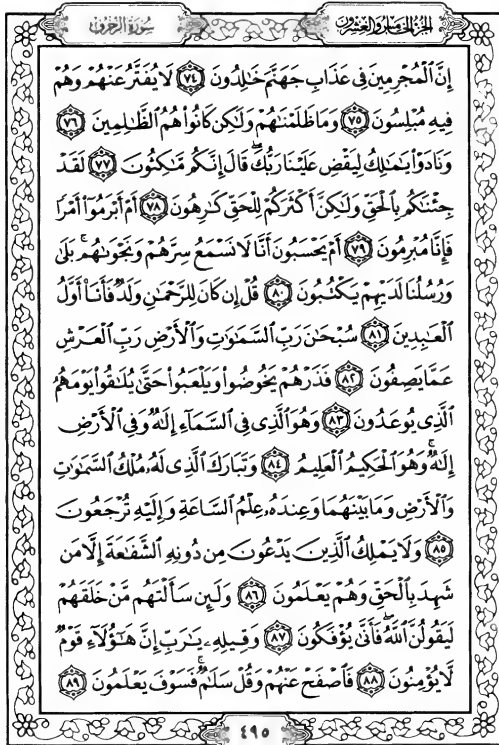 الجزء الخامس والعشرون
سورة الزخرف
إِنَّ ٱلْمُجْرِمِينَ فِى عَذَابِ جَهَنَّمَ خَـٰلِدُونَ ۝٧٤ لَا يُفَتَّرُ عَنْهُمْ وَهُمْ
فِيهِ مُبْلِسُونَ ۝٧٥ وَمَا ظَلَمْنَـٰهُمْ وَلَـٰكِن كَانُوا۟ هُمُ ٱلظَّـٰلِمِينَ ۝٧٦
وَنَادَوْا۟ يَـٰمَـٰلِكُ لِيَقْضِ عَلَيْنَا رَبُّكَ ۖ قَالَ إِنَّكُم مَّـٰكِثُونَ ۝٧٧ لَقَدْ
جِئْنَـٰكُم بِٱلْحَقِّ وَلَـٰكِنَّ أَكْثَرَكُمْ لِلْحَقِّ كَـٰرِهُونَ ۝٧٨ أَمْ أَبْرَمُوٓا۟ أَمْرًا
فَإِنَّا مُبْرِمُونَ ۝٧٩ أَمْ يَحْسَبُونَ أَنَّا لَا نَسْمَعُ سِرَّهُمْ وَنَجْوَىٰهُم ۚ بَلَىٰ
وَرُسُلُنَا لَدَيْهِمْ يَكْتُبُونَ ۝٨٠ قُلْ إِن كَانَ لِلرَّحْمَـٰنِ وَلَدٌ فَأَنَا۠ أَوَّلُ
ٱلْعَـٰبِدِينَ ۝٨١ سُبْحَـٰنَ رَبِّ ٱلسَّمَـٰوَٰتِ وَٱلْأَرْضِ رَبِّ ٱلْعَرْشِ
عَمَّا يَصِفُونَ ۝٨٢ فَذَرْهُمْ يَخُوضُوا۟ وَيَلْعَبُوا۟ حَتَّىٰ يُلَـٰقُوا۟ يَوْمَهُمُ
ٱلَّذِى يُوعَدُونَ ۝٨٣ وَهُوَ ٱلَّذِى فِى ٱلسَّمَآءِ إِلَـٰهٌ وَفِى ٱلْأَرْضِ
إِلَـٰهٌ ۚ وَهُوَ ٱلْحَكِيمُ ٱلْعَلِيمُ ۝٨٤ وَتَبَارَكَ ٱلَّذِى لَهُۥ مُلْكُ ٱلسَّمَـٰوَٰتِ
وَٱلْأَرْضِ وَمَا بَيْنَهُمَا وَعِندَهُۥ عِلْمُ ٱلسَّاعَةِ وَإِلَيْهِ تُرْجَعُونَ
۝٨٥ وَلَا يَمْلِكُ ٱلَّذِينَ يَدْعُونَ مِن دُونِهِ ٱلشَّفَـٰعَةَ إِلَّا مَن
شَهِدَ بِٱلْحَقِّ وَهُمْ يَعْلَمُونَ ۝٨٦ وَلَئِن سَأَلْتَهُم مَّنْ خَلَقَهُمْ
لَيَقُولُنَّ ٱللَّهُ ۖ فَأَنَّىٰ يُؤْفَكُونَ ۝٨٧ وَقِيلِهِۦ يَـٰرَبِّ إِنَّ هَـٰٓؤُلَآءِ قَوْمٌ
لَّا يُؤْمِنُونَ ۝٨٨ فَٱصْفَحْ عَنْهُمْ وَقُلْ سَلَـٰمٌ ۚ فَسَوْفَ يَعْلَمُونَ ۝٨٩
٤٩٥